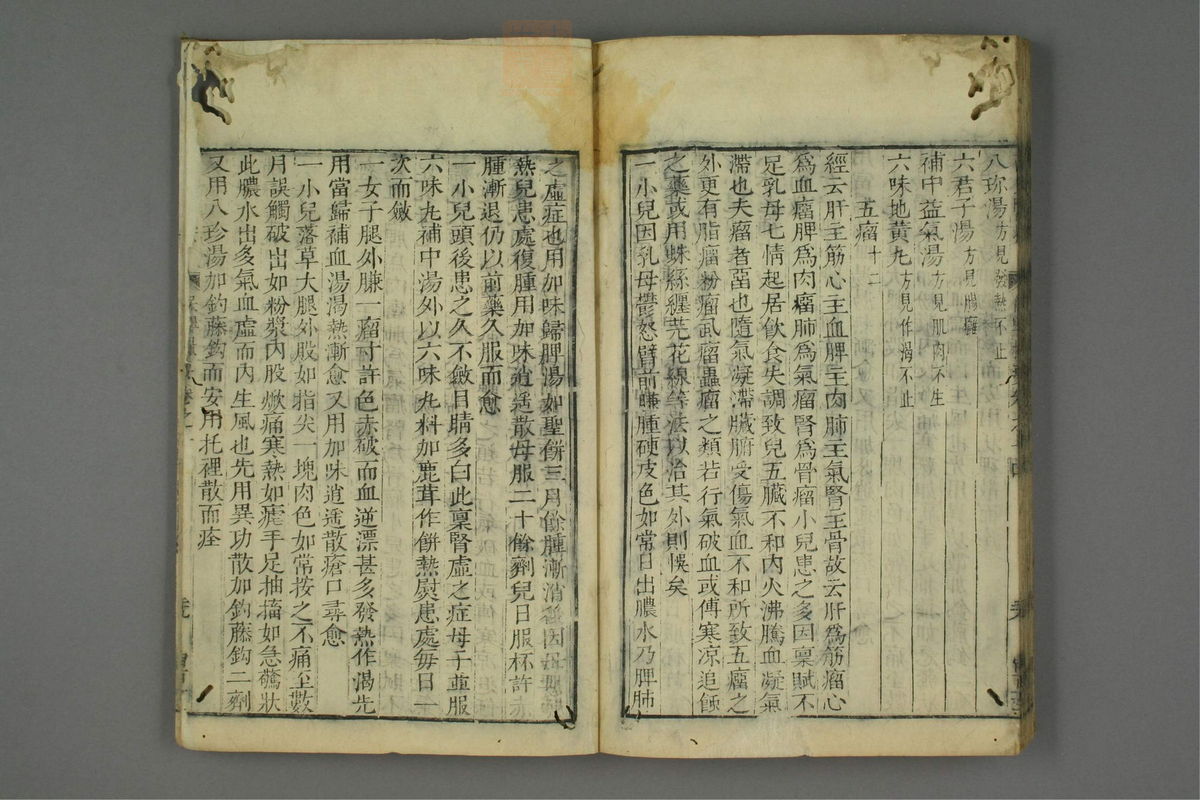 八珍湯方見發熱不止
六君子湯方見腸癰
補中益氣湯方見肌肉不生
六味地黃丸方見作渴不止
五瘤十二
經云肝主筋心主血脾主肉肺主氣腎主骨故云肝爲筋瘤心
爲血瘤脾爲肉瘤肺爲氣瘤腎爲骨瘤小兒患之多因稟賦不
足乳母七情起居飲食失調致兒五臟不和內火沸騰血凝氣
滯也夫瘤者留也隨氣凝滯臟腑受傷氣血不和所致五瘤之
外更有脂瘤粉瘤虱瘤蟲瘤之類若行氣破血或傅寒凉追蝕
之藥或用蛛絲纏芫花線等法以治其外則悞矣
一小兒因乳母鬱怒臂前臁腫硬皮色如常日出膿水乃脾肺
之虛症也用加味歸脾湯如聖餅三月餘腫漸消後因母
熱兒患處復腫用加味逍遙散母服二十餘劑兒日服杯許
腫漸退仍以前藥久服而愈
一小兒頭後患之久不斂目睛多白此稟腎虛之症母子並服
六味丸補中湯外以六味丸料加鹿茸作餅熱熨患處每日一
次而斂
一女子腿外臁一瘤寸許色赤破而血逆漂甚多發熱作渴先
用當歸補血湯渴熱漸愈又用加味逍遙散瘡口尋愈
一小兒落草大腿外股如指尖一塊肉色如常按之不痛至數
月誤觸破出如粉漿內股焮痛寒熱如瘧手足抽搐如急驚狀
此膿水出多氣血虛而內生風也先用異功散加鈎藤鈎二劑
又用八珍湯加鈎藤鈎而安用托裡散而痊